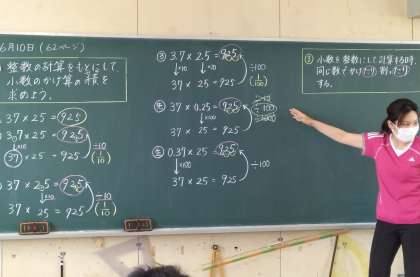 6月10日(62ページ)
整数の計算をもとにして、
小数のかけ算の積を
求めよう。
37×25=925
3.7×25=92.5
×10 ÷10 (1/10)
37×25=925
×10 ÷10 (1/10)
37×25=925
③ 3.7×2.5=9.25
×10 ×10 ÷100 (1/100)
37×25=925
37×0.25=9.25
×100 ÷100
37×25=925
0.37×25=9.25
×100 ÷100
37×25=925
小数を整数にして計算する時、
同じ数でかけたり、割ったり
する。